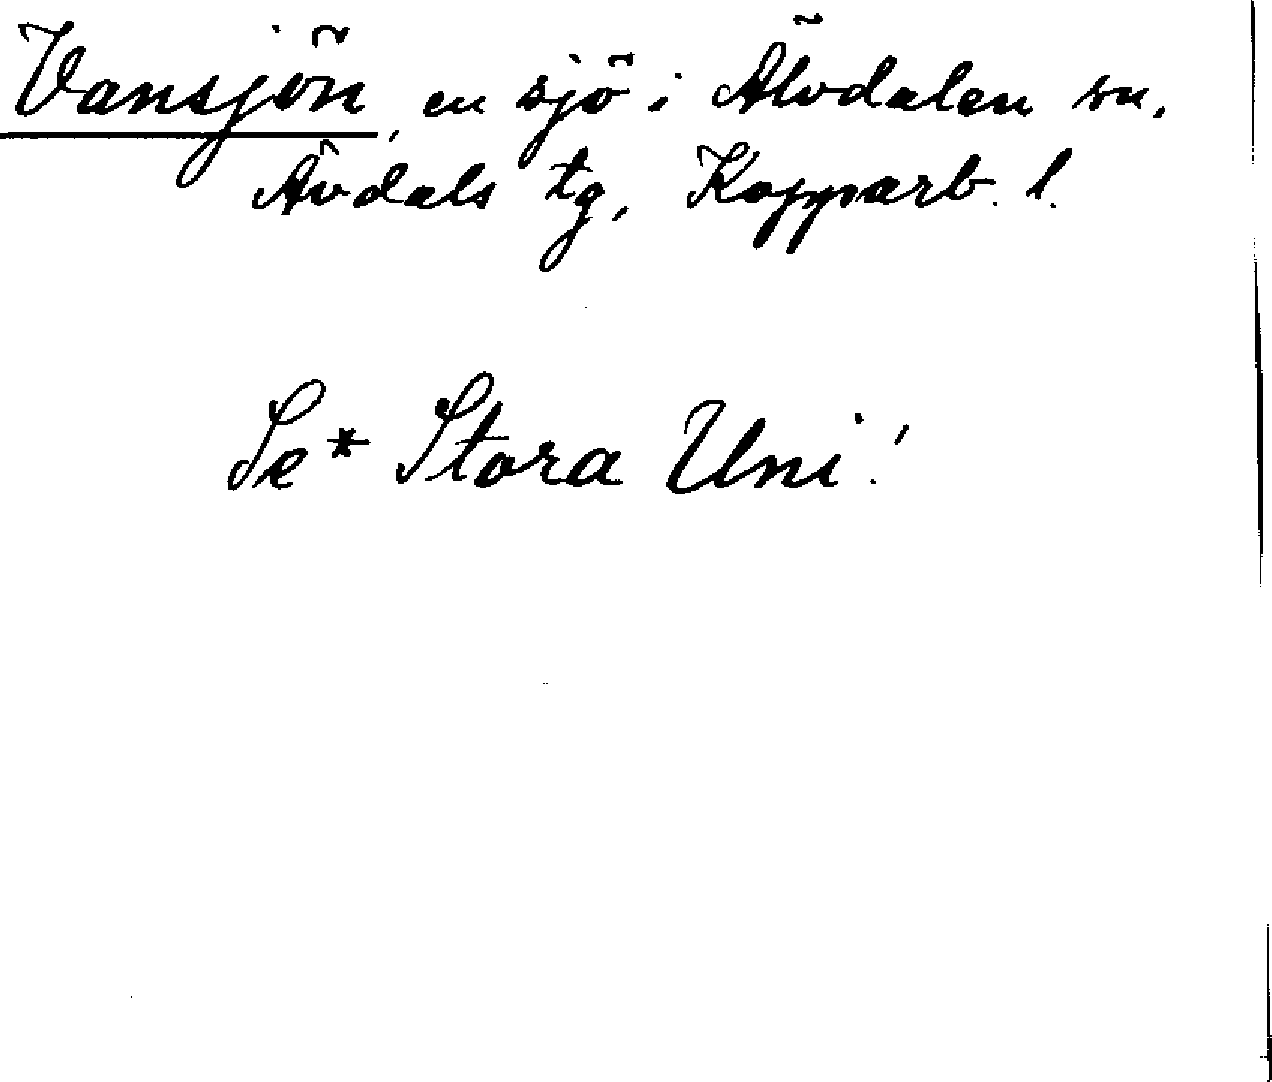 Vansjön, en sjö i Älvdalen sn.
Ävdals tg, Kopparb. l.
Se* Stora Uni!